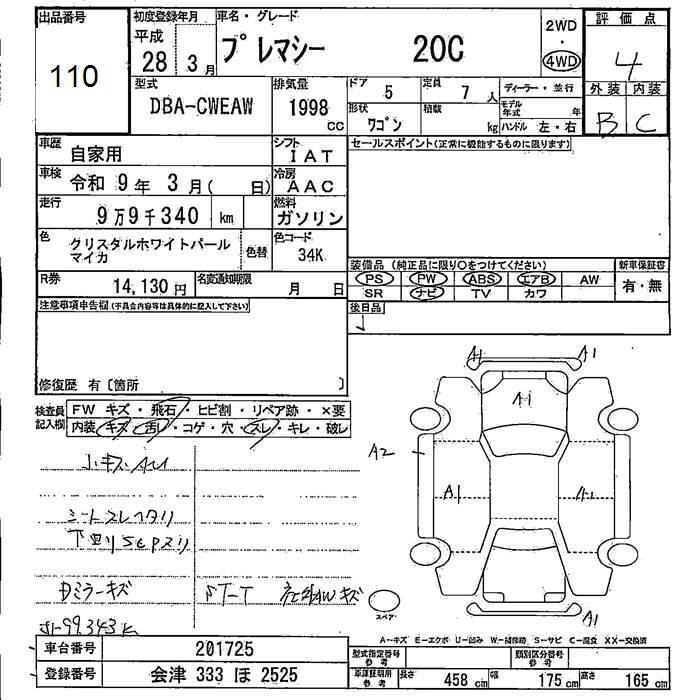 出品番号
110
初度登録年月
平成
28 3月
車名・グレード
プレマシー 20C
2WD
・
4WD
評価点
4
外装 内装
B C
型式
DBA-CWEAW
排気量
1998
cc
ドア
5
定員
7 人
ディーラー・並行
形状
ワゴン
積載
kg
モデル年式 年
ハンドル 左・右
車歴
自家用
シフト
IAT
車検
令和 9年 3月( 日)
冷房
AAC
走行
9万9千340 km
燃料
ガソリン
色
クリスタルホワイトパール
マイカ
色替
色コード
34K
R券
14,130円
名変通知期限
月 日
セールスポイント(正常に機能するものに限ります)
装備品 (純正品に限り○をつけてください)
新車保証書
PS PW ABS エアB AW
有・無
SR ナビ TV カワ
後日品
注意事項申告欄(不具合内容等は具体的に記入して下さい)
修復歴 有〔箇所 〕
検査員
記入欄
FW キズ・飛石・ヒビ割・リペア跡・×要
内装・キズ・汚レ・コゲ・穴・スレ・キレ・破レ
小キズ・AU
シートスレヘタリ
下回りScpスリ
Dミラーキズ
社外AWキズ
A1 A1
A1
A2
A1 A1
A1
スペア
A-キズ E-エクボ U-凹み W-補修跡 S-サビ C-腐食 XX-交換済
車台番号
201725
登録番号
会津 333 ほ 2525
型式指定番号
参考
類別区分番号
参考
車庫証明用
参考
長さ 458 cm
幅 175 cm
高さ 165 cm